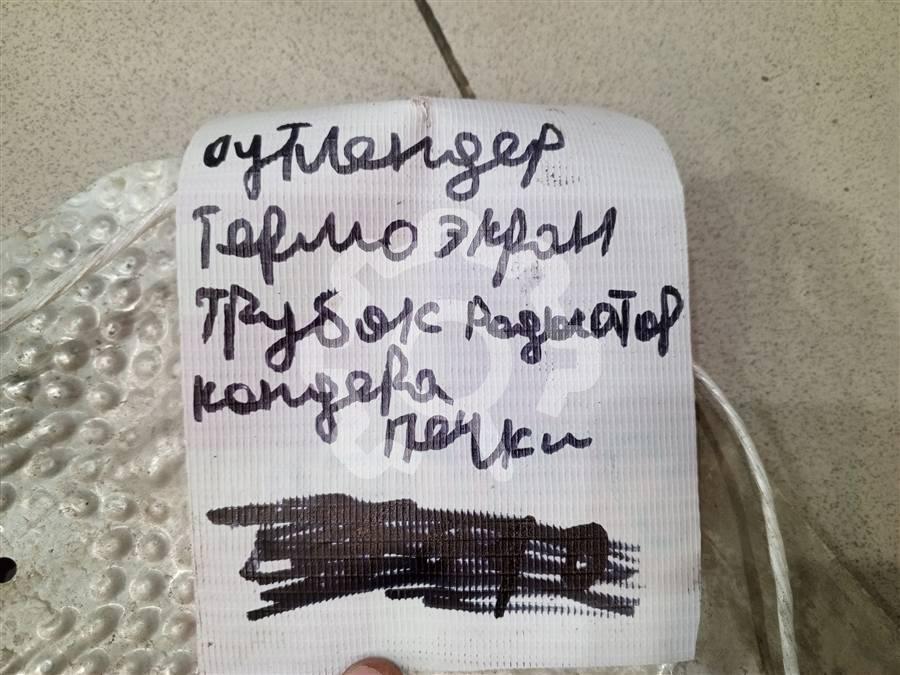 оутлендер
термо экран
трубок радиатор
кондера
печки